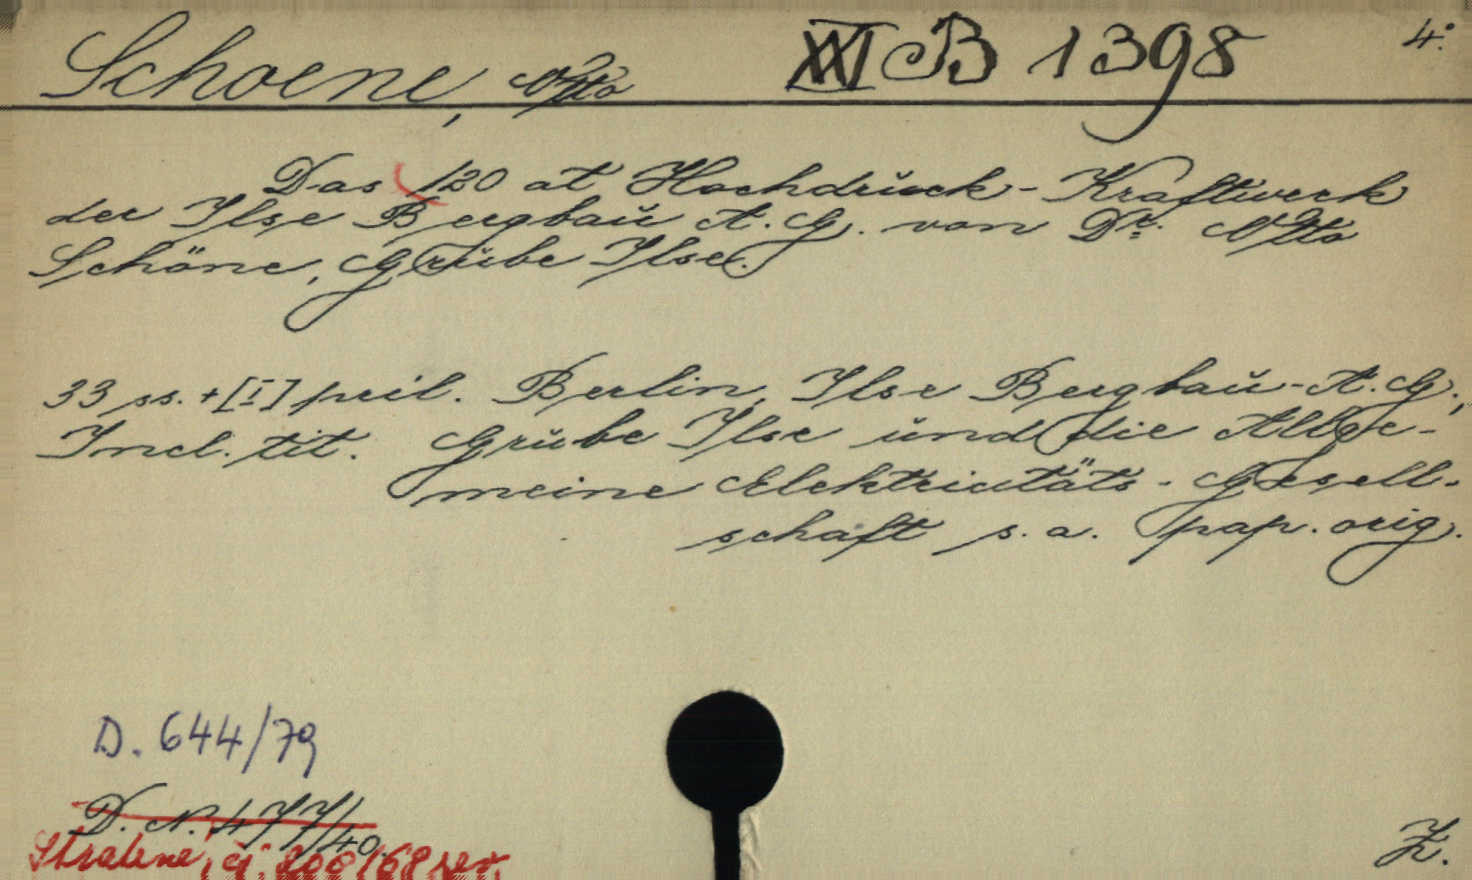 Schoene, Otto XXI B 1398 4°
Das 120 at Hochdruck-Kraftwerk
der Ilse Bergbau A.G. von Dr. Otto
Schöne, Grube Ilse.
33 ss. + [I] pril. Berlin, Ilse Bergbau-A.G.,
Incl. tit. Grube Ilse und die Allge-
meine Elektricitäts-Gesell-
schaft s.a. pap. orig.
D. 644/79
D. N. 477/40
Stralene, č.j. 800/68 rev.
Z.